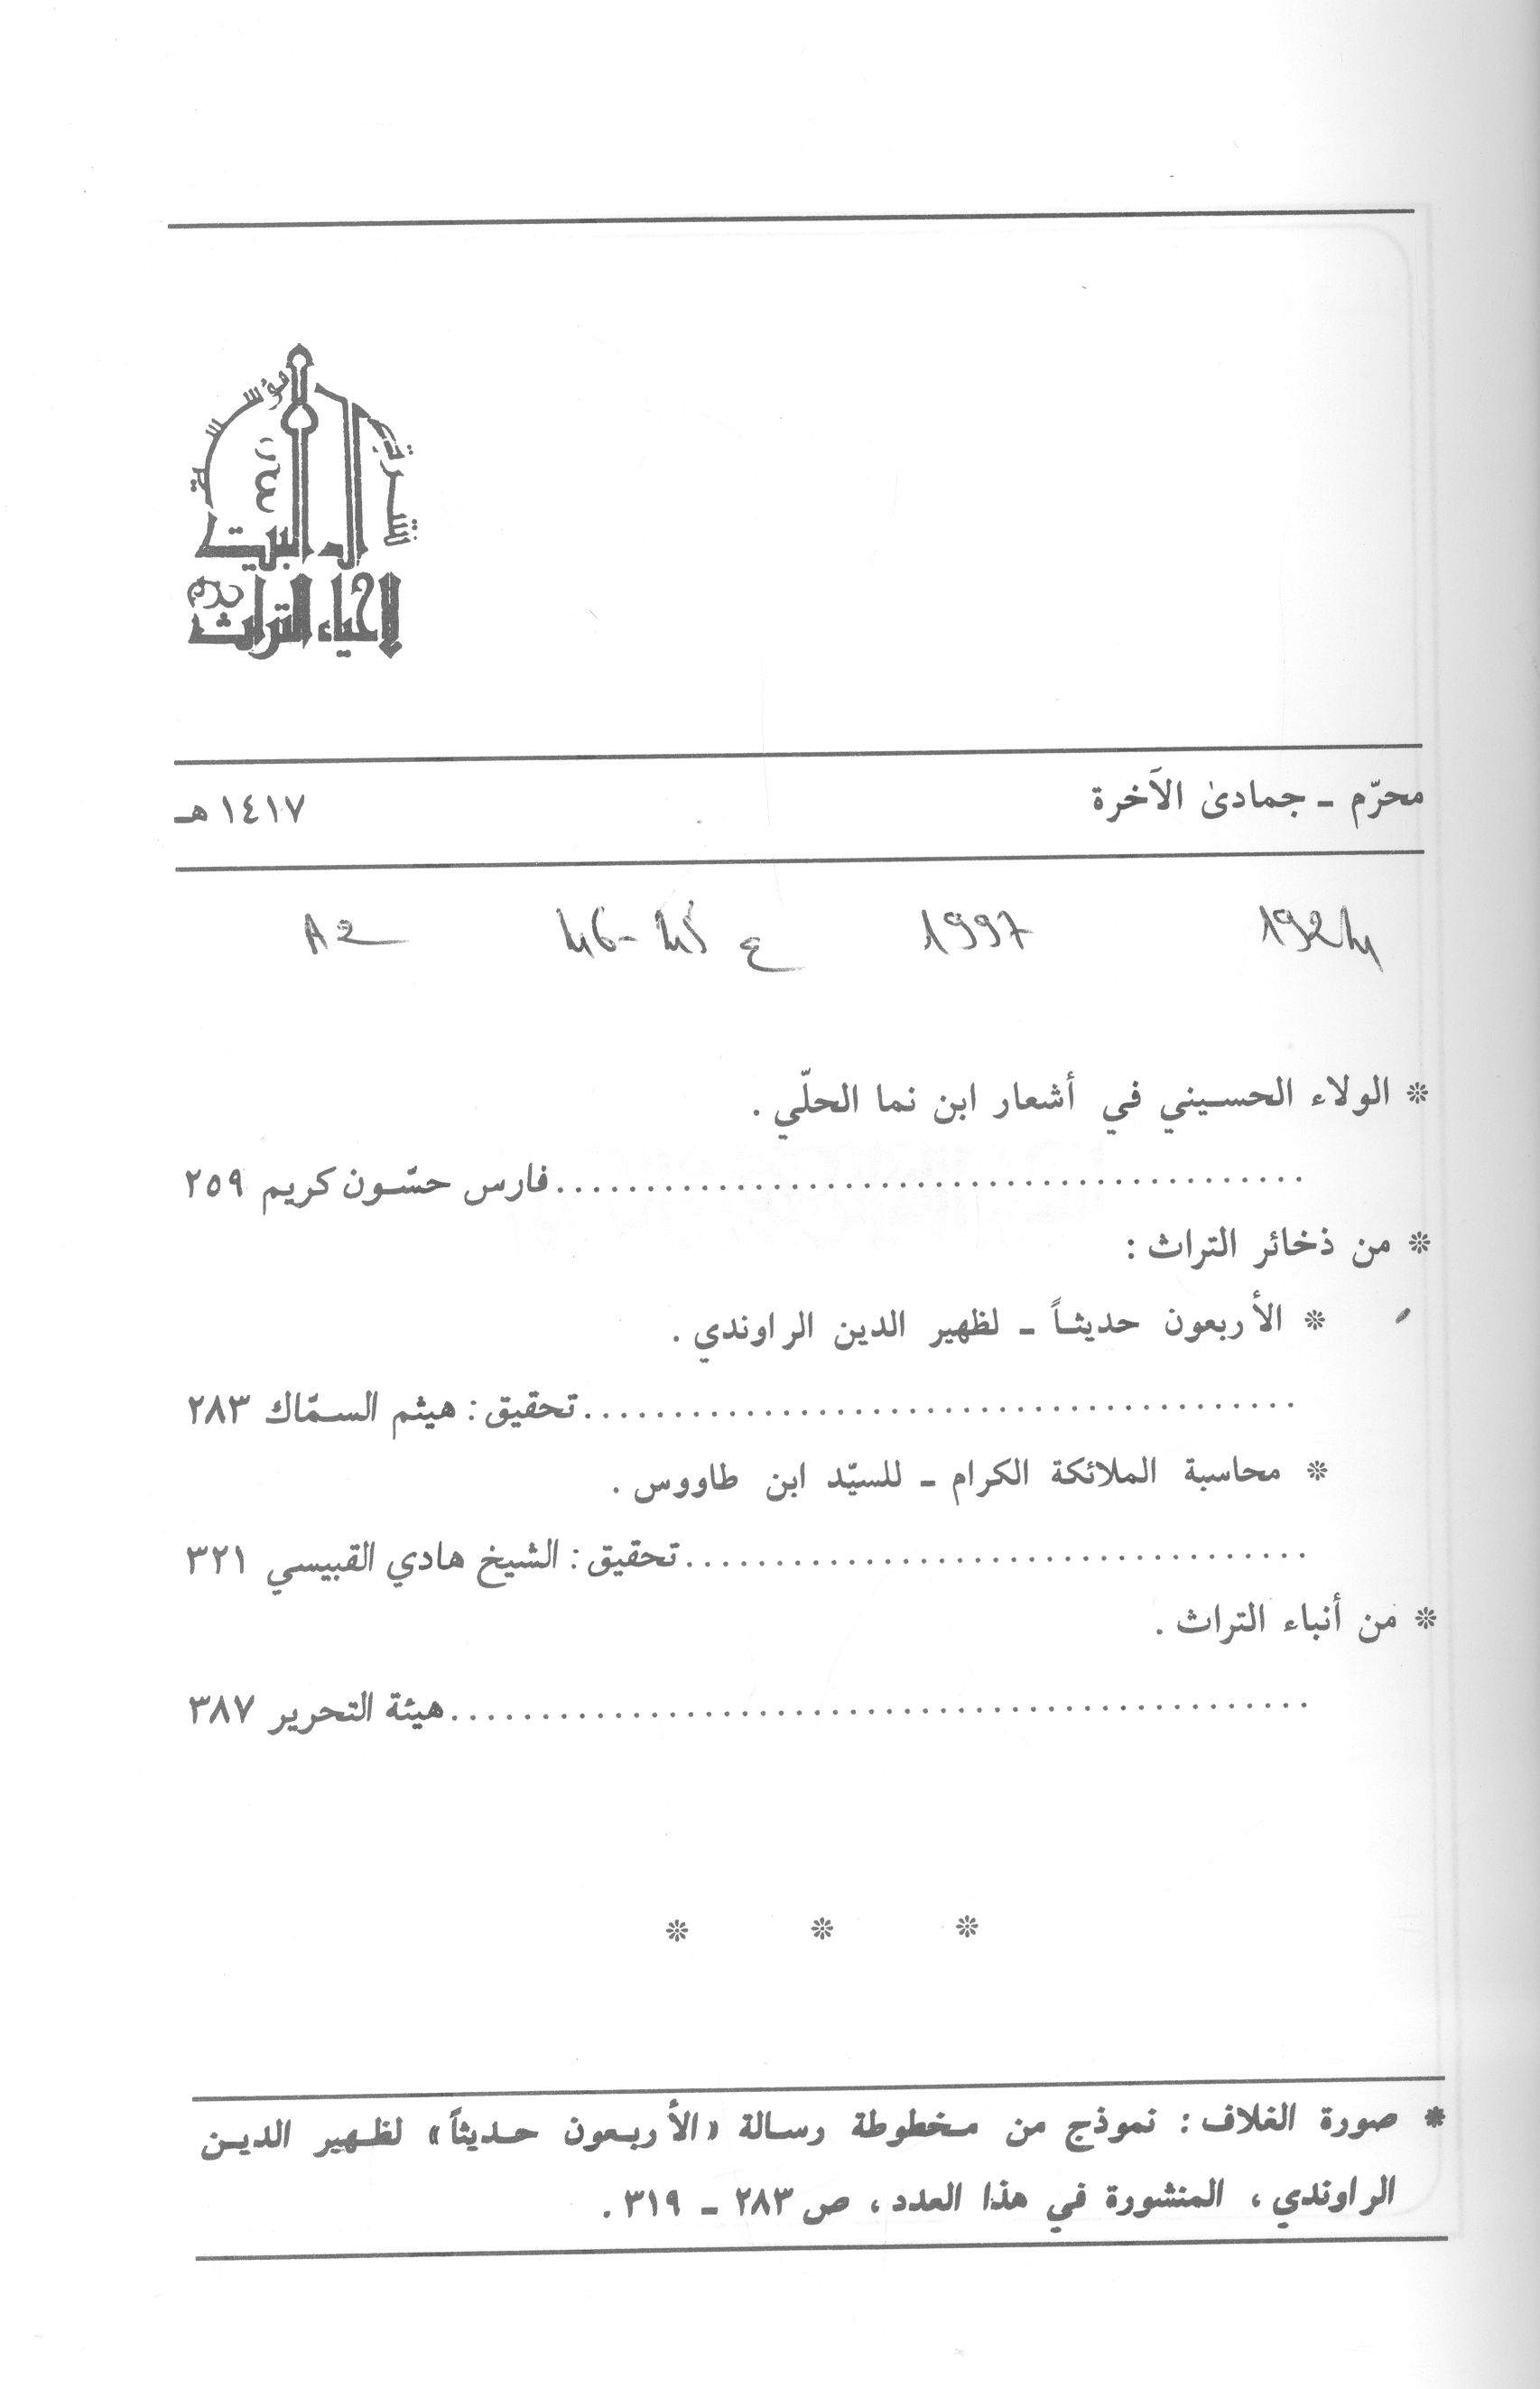 مؤسسة
آل البيت
لإحياء التراث
محرّم ـ جمادىٰ الآخرة ١٤١٧ هـ
1924 1997 ع 45-46 A2
* الولاء الحسـيني في أشعار ابن نما الحلّي .
..........................................فارس حسّـون كريم ٢٥٩
* من ذخائر التراث :
* الأربعون حديثـاً ـ لظهير الدين الراوندي .
........................................تحقيق : هيثم السـمّاك ٢٨٣
* محاسبة الملائكة الكرام ـ للسيّد ابن طاووس .
...................................تحقيق : الشيخ هادي القبيسي ٣٢١
* من أنباء التراث .
................................................هيئة التحرير ٣٨٧
* * *
* صورة الغلاف : نموذج من مخطوطة رسـالة «الأربـعون حـديثاً» لظـهير الديـن
الراوندي ، المنشورة في هذا العدد ، ص ٢٨٣ ـ ٣١٩ .